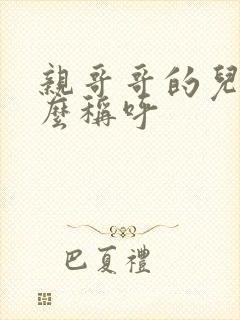 親哥哥的兒
麼稱呼
巴夏禮